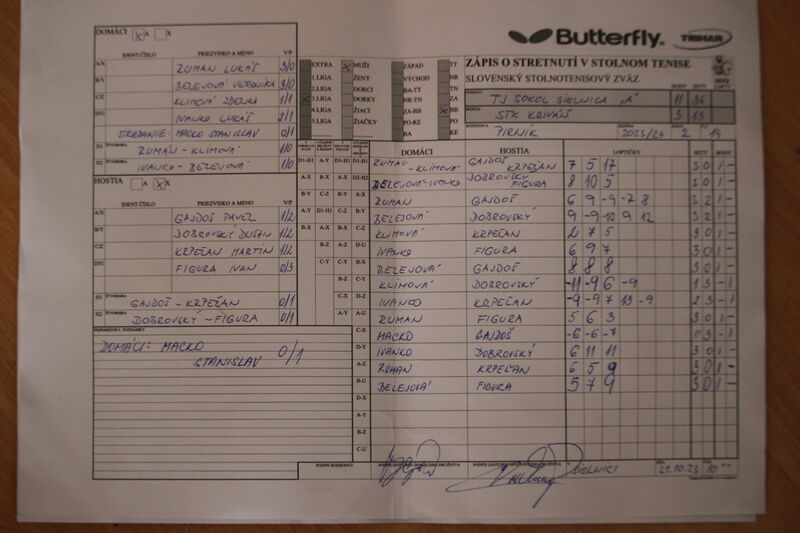 DOMÁCI A X X
Butterfly. TIBHAR
IDENT.ČÍSLO PRIEZVISKO A MENO V/P
A/X RUMAN LUKÁŠ 3/0
B/Y BELEJOVÁ VERONIKA 3/0
C/Z KLIMOVÁ ZDENKA 1/1
D/U IVANKO LUKÁŠ 2/1
STRIEDANIE: MACKO STANISLAV 0/1
D1 RUMAN - KLIMOVÁ 1/0
D2 IVANKO - BELEJOVÁ 1/0
HOSTIA A X X
IDENT.ČÍSLO PRIEZVISKO A MENO V/P
A/X GAJDOŠ PAVEL 1/2
B/Y DOBROVSKÝ DUŠAN 1/2
C/Z KRPEĽAN MARTIN 1/2
D/U FIGURA IVAN 0/3
H1 GAJDOŠ - KRPEĽAN 0/1
H2 DOBROVSKÝ - FIGURA 0/1
DOMÁCI: MACKO
STANISLAV 0/1
EXTRA X MUŽI ZÁPAD TT
1.LIGA ŽENY VÝCHOD NR
2.LIGA DORCI BA-TT TN
X 3.LIGA DORKY NR-TN ZA
4.LIGA ŽIACI ZA-BB X BB
5.LIGA ŽIAČKY PO-KE PO
BA KE
ZÁPIS O STRETNUTÍ V STOLNOM TENISE
SLOVENSKÝ STOLNOTENISOVÝ ZVÄZ
DOMÁCI TJ SOKOL SIELNICA "A" 11 36
HOSTIA STK KRIVÁŇ 3 15
ROZHODCA PIRNÍK 2023/24 2 14
DOMÁCI HOSTIA LOPTIČKY SETY BODY
RUMAN - KLIMOVÁ GAJDOŠ KRPEĽAN 7 5 17 3 0 1 -
BELEJOVÁ - IVANKO DOBROVSKÝ FIGURA 8 10 5 3 0 1 -
RUMAN GAJDOŠ 6 9 -9 -7 8 3 2 1 -
BELEJOVÁ DOBROVSKÝ 9 -9 -10 9 12 3 2 1 -
KLIMOVÁ KRPEĽAN 2 7 5 3 0 1 -
IVANKO FIGURA 6 9 7 3 0 1 -
BELEJOVÁ GAJDOŠ 8 8 8 3 0 1 -
KLIMOVÁ DOBROVSKÝ -11 -9 6 -9 1 3 - 1
IVANKO KRPEĽAN -9 -9 7 13 -9 2 3 - 1
RUMAN FIGURA 5 6 3 3 0 1 -
MACKO GAJDOŠ -6 -6 -7 0 3 - 1
IVANKO DOBROVSKÝ 6 11 11 3 0 1 -
RUMAN KRPEĽAN 6 5 9 3 0 1 -
BELEJOVÁ FIGURA 5 7 9 3 0 1 -
PODPIS ROZHODCU
V SIELNICI 21.10.23 10